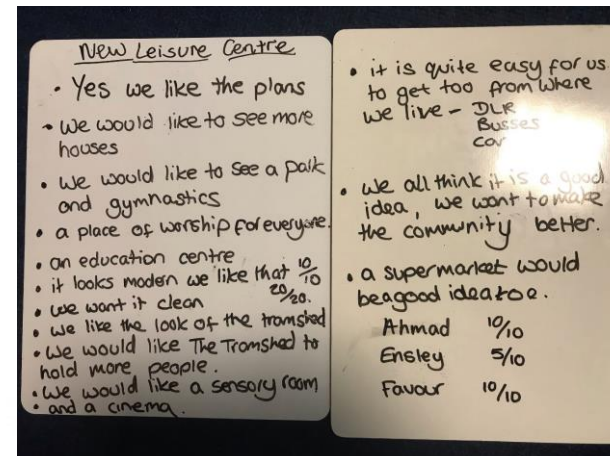 New Leisure Centre
• Yes we like the plans
• We would like to see more
houses
• We would like to see a park
and gymnastics
• a place of worship for everyone.
• an education centre
• it looks modern we like that 10/10
• we want it clean 20/20.
• we like the look of the tramshed
• We would like The Tramshed to
hold more people.
• We would like a sensory room
• and a cinema.
• it is quite easy for us
to get too from where
we live - DLR
Busses
car
• we all think it is a good
idea, we want to make
the community better.
• a supermarket would
be a good idea toe.
Ahmad 10/10
Ensley 5/10
Favour 10/10